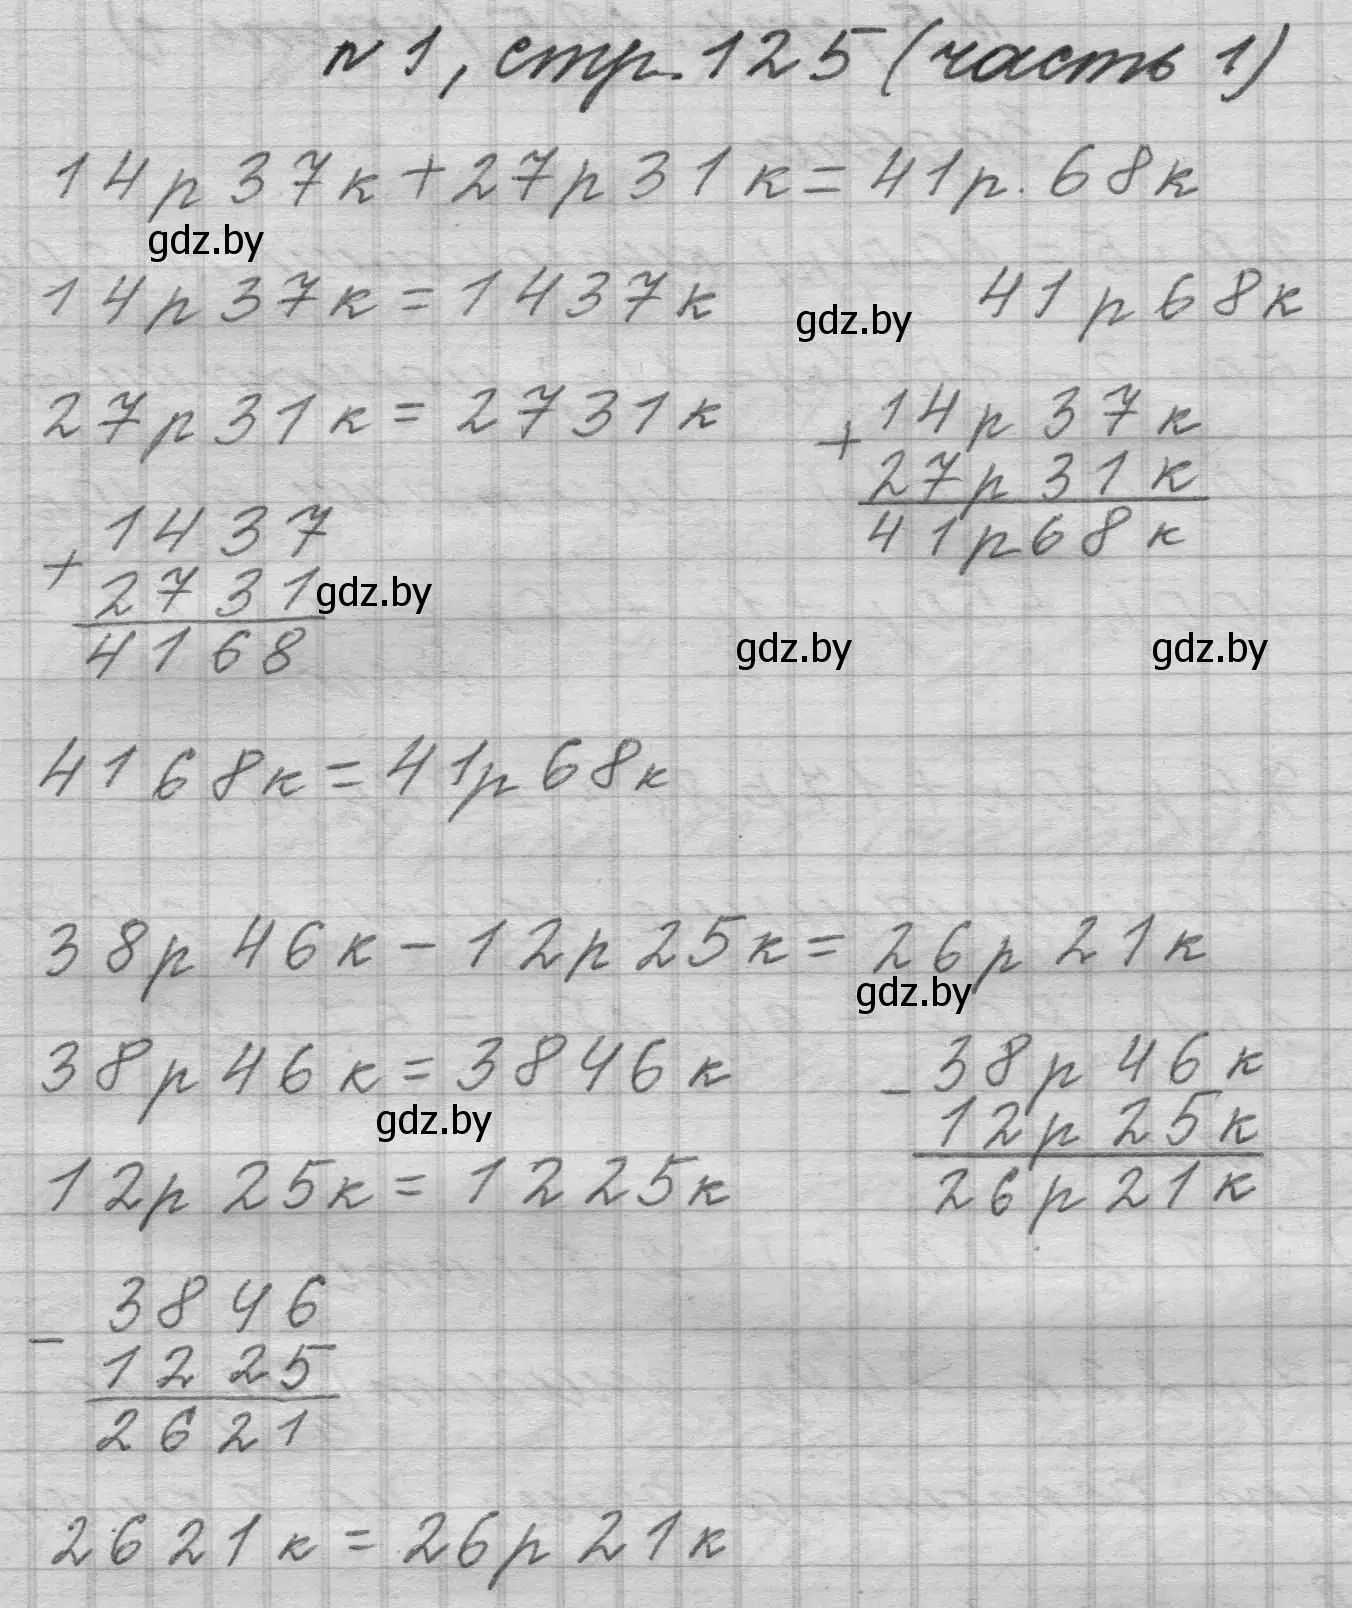 № 1, стр. 125 (часть 1)
14р 37к + 27р 31к = 41р. 68к
gdz.by
14р 37к = 1437к
gdz.by
41р 68к
27р 31к = 2731к
+ 14р 37к
27р 31к
41р 68к
+ 1437
2731
gdz.by
4168
gdz.by
gdz.by
4168к = 41р 68к
38р 46к - 12р 25к = 26р 21к
gdz.by
38р 46к = 3846к
gdz.by
- 38р 46к
12р 25к
26р 21к
12р 25к = 1225к
- 3846
1225
2621
2621к = 26р 21к